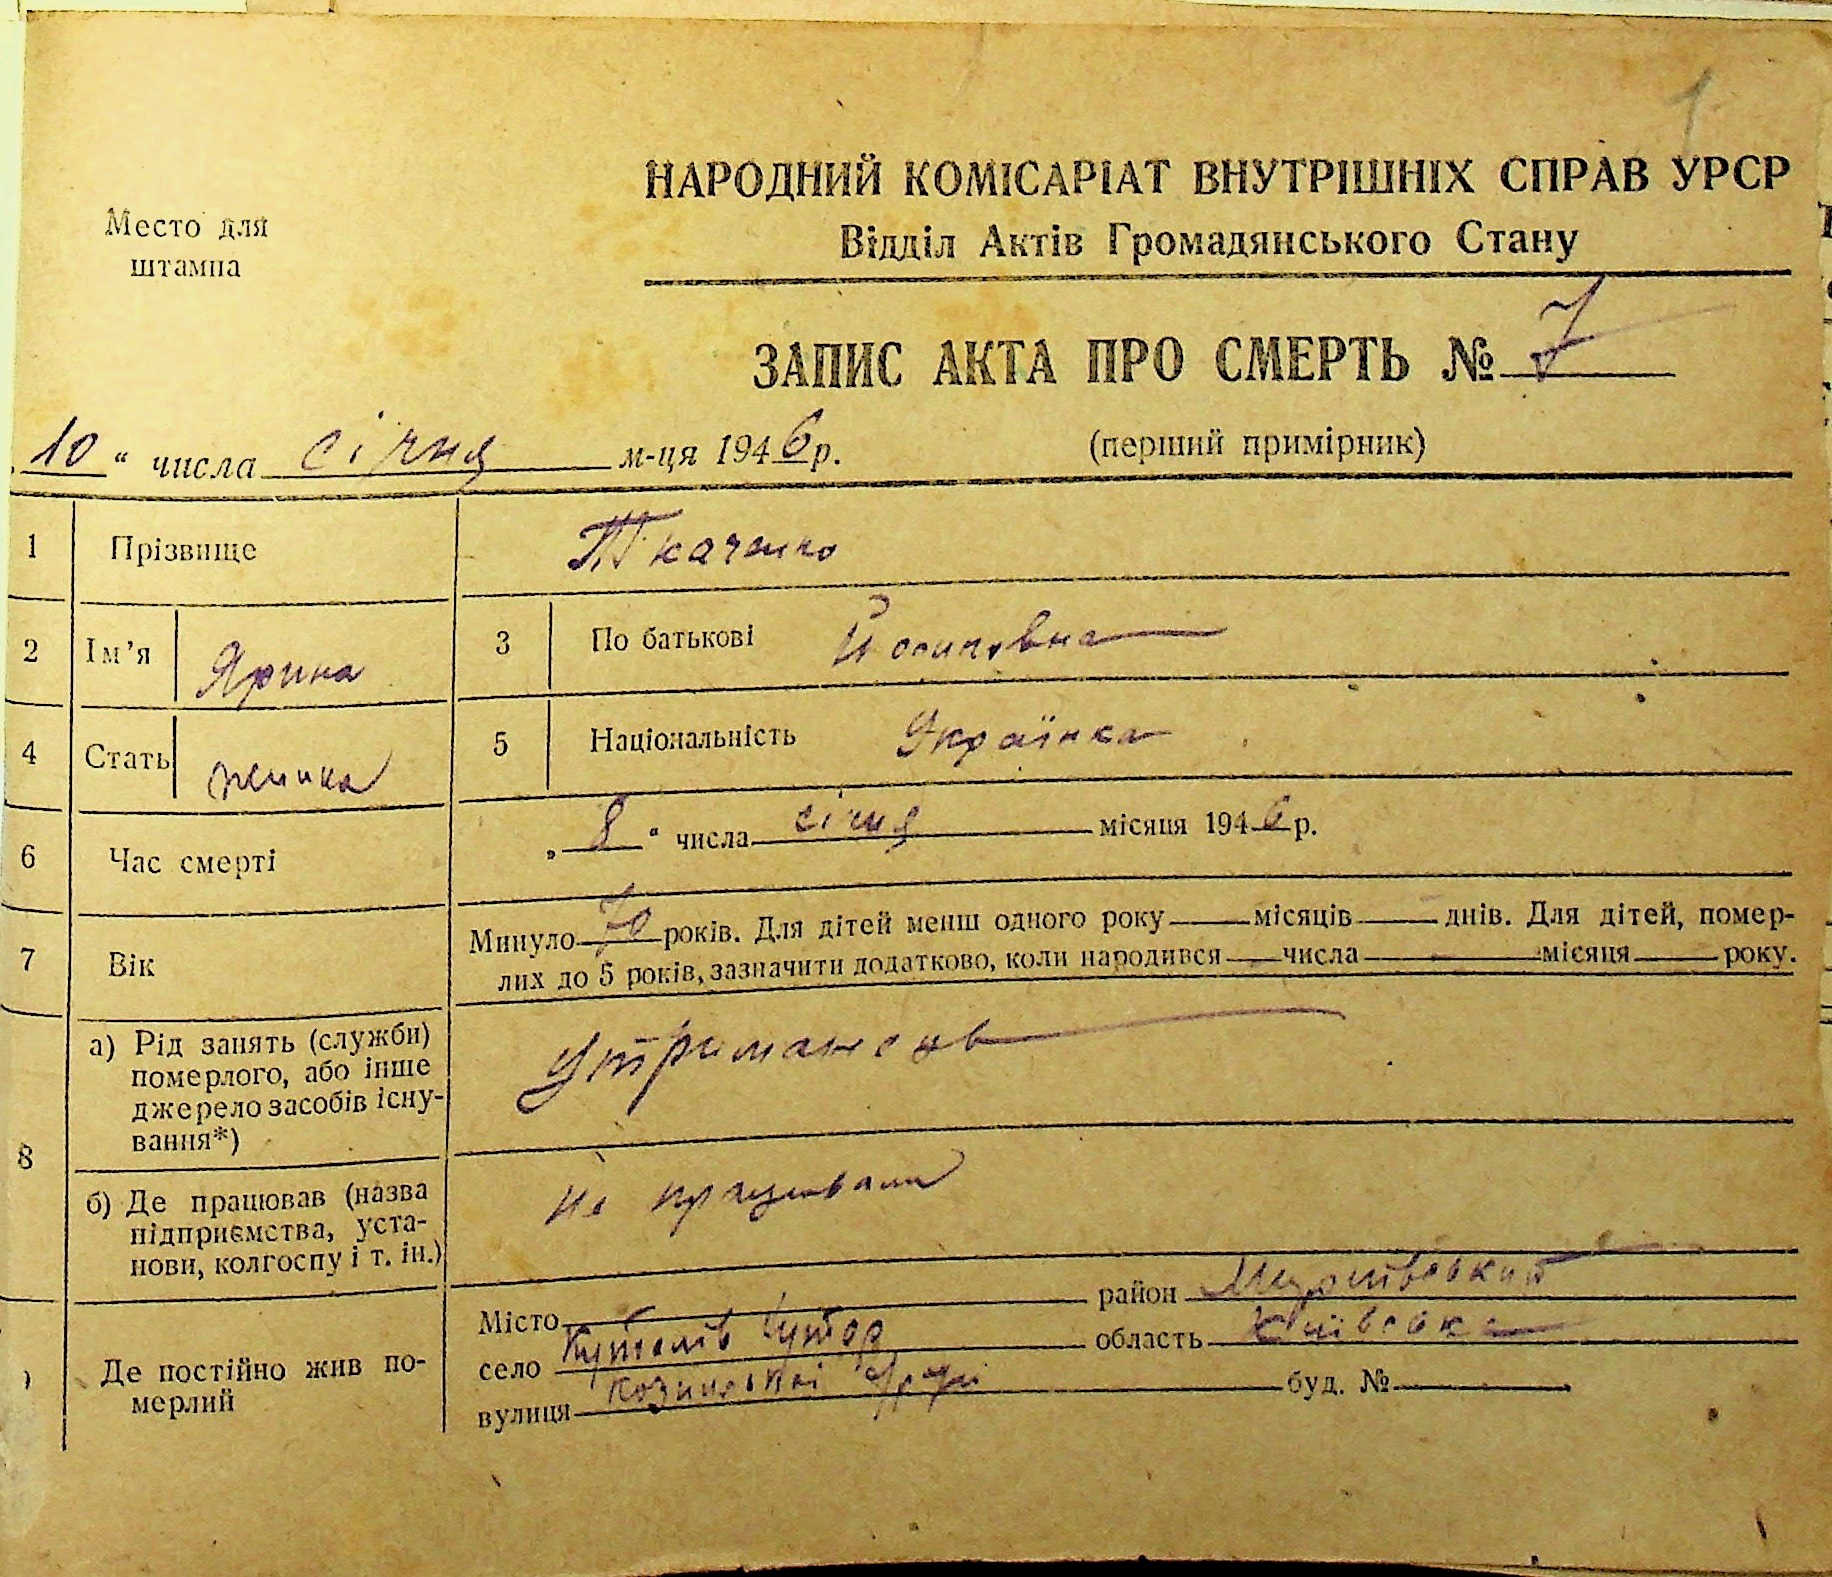 1
НАРОДНИЙ КОМІСАРІАТ ВНУТРІШНІХ СПРАВ УРСР
Відділ Актів Громадянського Стану
Место для
штампа
ЗАПИС АКТА ПРО СМЕРТЬ № 7
„10“ числа січня м-ця 1946 р. (перший примірник)
1 Прізвище Ткаченко
2 Ім’я Ярина 3 По батькові Йосиповна
4 Стать жінка 5 Національність Українка
6 Час смерті „8“ числа січня місяця 1946 р.
7 Вік Минуло 70 років. Для дітей менш одного року — місяців — днів. Для дітей, помер-
лих до 5 років, зазначити додатково, коли народився — числа — місяця — року.
8 а) Рід занять (служби)
померлого, або інше
джерело засобів існу-
вання*) Утриманень
б) Де працював (назва
підприємства, уста-
нови, колгоспу і т. ін.) не працювала
Де постійно жив по-
мерлий
Місто район
село хутор область Київська
вулиця Козинської буд. №